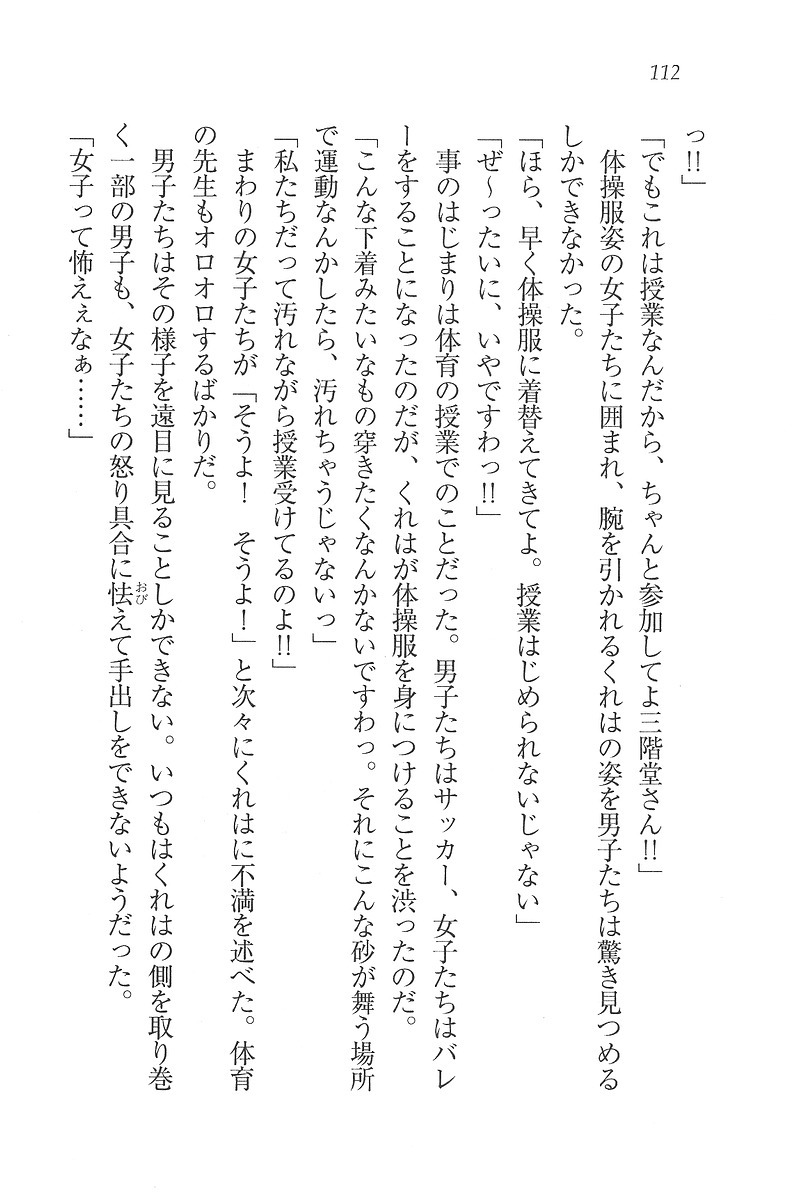 112
っ!!」
「でもこれは授業なんだから、ちゃんと参加してよ三階堂さん!!」
体操服姿の女子たちに囲まれ、腕を引かれるくれはの姿を男子たちは驚き見つめる
しかできなかった。
「ほら、早く体操服に着替えてきてよ。授業はじめられないじゃない」
「ぜ〜ったいに、いやですわっ!!」
事のはじまりは体育の授業でのことだった。男子たちはサッカー、女子たちはバレ
ーをすることになったのだが、くれはが体操服を身につけることを渋ったのだ。
「こんな下着みたいなもの穿きたくなんかないですわっ。それにこんな砂が舞う場所
で運動なんかしたら、汚れちゃうじゃないっ」
「私たちだって汚れながら授業受けてるのよ!!」
まわりの女子たちが「そうよ！　そうよ！」と次々にくれはに不満を述べた。体育
の先生もオロオロするばかりだ。
男子たちはその様子を遠目に見ることしかできない。いつもはくれはの側を取り巻
く一部の男子も、女子たちの怒り具合に怯えて手出しをできないようだった。
おび
「女子って怖えぇなぁ……」